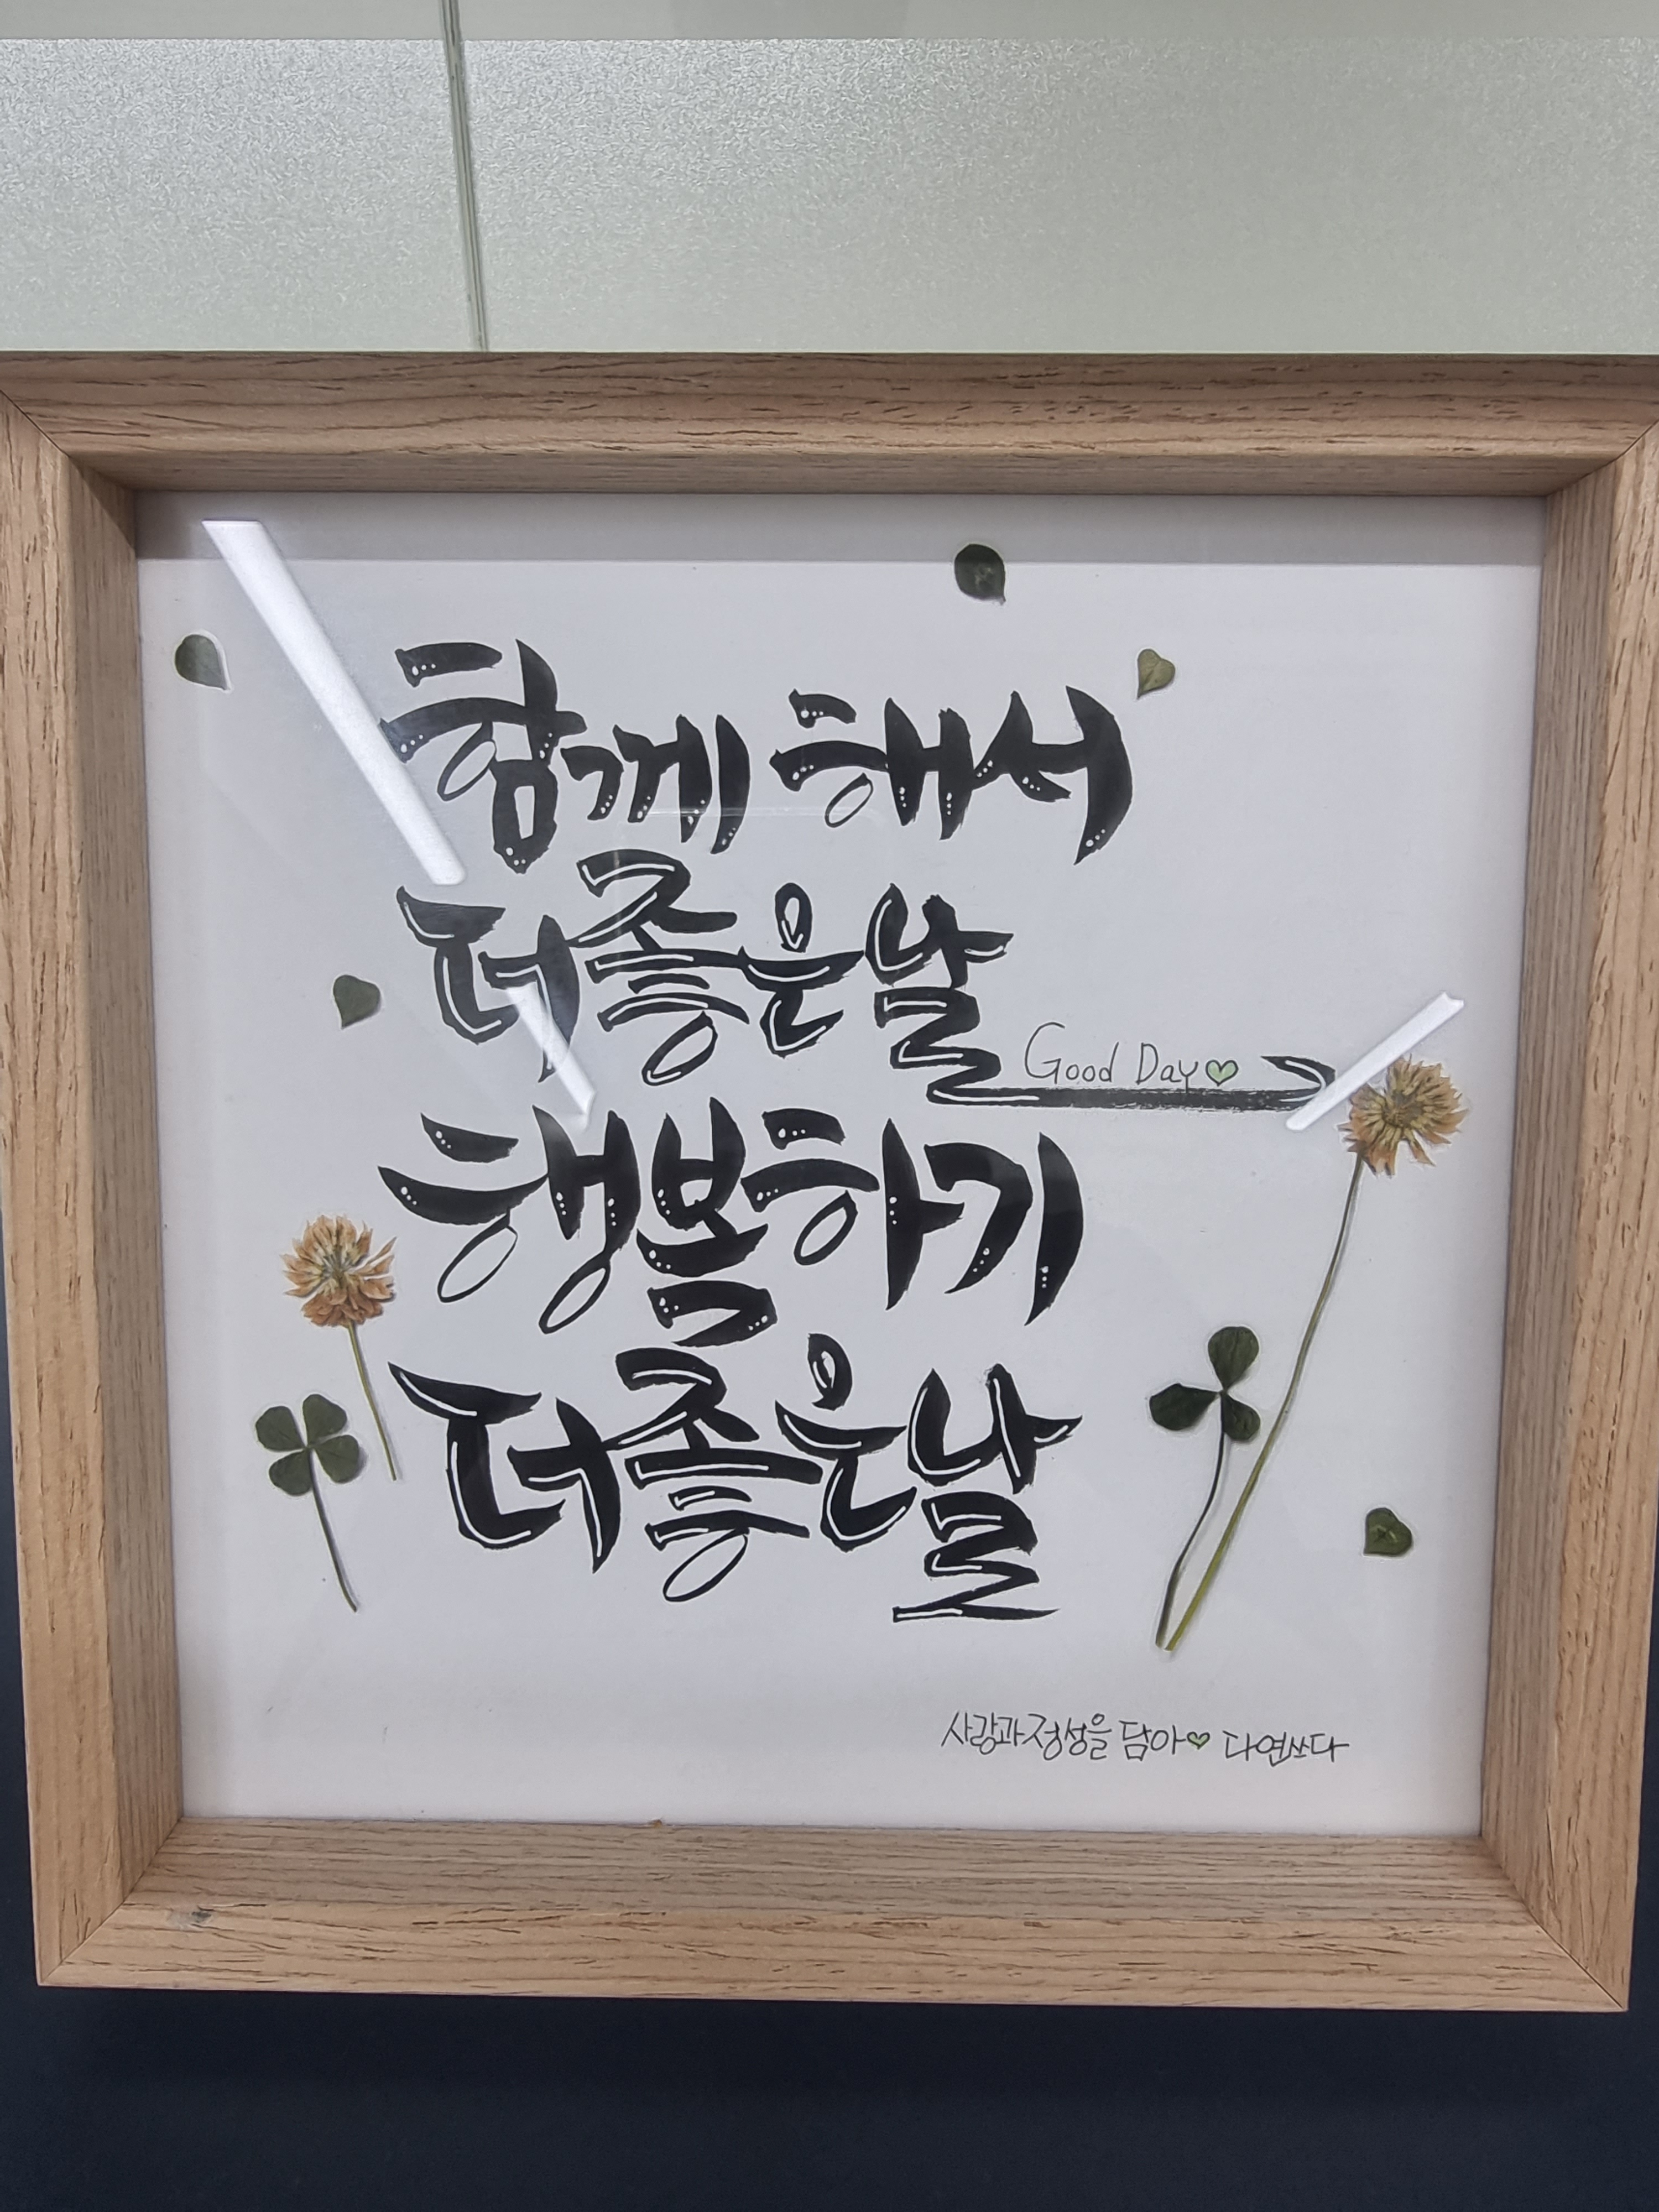 함께 해서
더 좋은 날
Good Day♡
행복하기
더 좋은 날
사랑과 정성을 담아♡ 다연쓰다